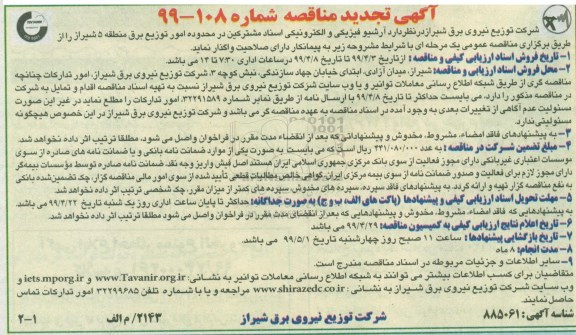 آگهی تجدید مناقصه شماره ۱۰۸-۹۹
شرکت توزیع نیروی برق شیراز در نظر دارد آرشیو فیزیکی و الکترونیکی اسناد مشترکین در محدوده امور توزیع برق منطقه ۵ شیراز را از
طریق برگزاری مناقصه عمومی یک مرحله ای با شرایط مشروحه زیر به پیمانکار دارای صلاحیت واگذار نماید.
۱- تاریخ فروش اسناد ارزیابی کیفی و مناقصه: از تاریخ ۹۹/۴/۳ تا تاریخ ۹۹/۴/۸ درساعات اداری ۷/۳۰ تا ۱۴ می باشد.
۲- محل فروش اسناد ارزیابی و مناقصه: شیراز، میدان آزادی، ابتدای خیابان جهاد سازندگی، نبش کوچه ۳، شرکت توزیع نیروی برق شیراز، امور تدارکات چنانچه
مناقصه گری از طریق شبکه اطلاع رسانی معاملات توانیر و یا وب سایت شرکت توزیع نیروی برق شیراز نسبت به تهیه اسناد مناقصه اقدام و تمایل به شرکت
در مناقصه مذکور را دارد، می بایست حداکثر تا تاریخ ۹۹/۴/۸ با ارسال نامه از طریق نمابر شماره ۳۲۲۹۱۵۸۹ امور تدارکات را مطلع نماید در غیر این صورت
مسئولیت عدم آگاهی از تغییرات بعدی به وجود آمده در اسناد مناقصه به عهده مناقصه گر می باشد و شرکت توزیع نیروی برق شیراز در این خصوص هیچگونه
مسئولیتی ندارد.
۳- به پیشنهادهای فاقد امضاء، مشروط، مخدوش و پیشنهاداتی که بعد از انقضاء مدت مقرر در فراخوان واصل می شود، مطلقا ترتیب اثر داده نخواهد شد.
۴- مبلغ تضمین شرکت در مناقصه: به عدد ۳۳۱/۰۸۰/۰۰۰ ریال است که می بایست به صورت یکی از موارد ضمانت نامه بانکی و یا ضمانت نامه های صادره از سوی
موسسات اعتباری غیربانکی دارای مجوز فعالیت از سوی بانک مرکزی جمهوری اسلامی ایران هستند اصل فیش واریز وجه نقد، ضمانت نامه صادره توسط مؤسسات بیمه‌گر
دارای مجوز لازم برای فعالیت و صدور ضمانت نامه از سوی بیمه مرکزی ایران، گواهی خالص مطالبات قطعی تأیید شده از سوی امور مالی مناقصه گزار، چک تضمین‌شده بانکی
به نفع مناقصه گزار تهیه و ارائه گردد. به پیشنهادهای فاقد سپرده، سپرده های مخدوش، سپرده های کمتر از میزان مقرر، چک شخصی ترتیب اثر داده نخواهد شد.
۵- مهلت تحویل اسناد ارزیابی کیفی و پیشنهادها (پاکت های الف، ب و ج) به صورت جداگانه: حداکثر تا پایان ساعت اداری روز یک شنبه تاریخ ۹۹/۴/۲۲ می باشد
به پیشنهادهایی که فاقد امضاء، مشروط، مخدوش و پیشنهادهایی که بعد از انقضای مدت مقرر در فراخوان واصل می شود مطلقا ترتیب اثر داده نخواهد شد.
۶- تاریخ اعلام نتایج ارزیابی کیفی به کمیسیون مناقصه: ۹۹/۴/۲۹ می باشد.
۷- تاریخ بازگشایی پیشنهادها: ساعت ۱۱ صبح روز چهارشنبه تاریخ ۹۹/۵/۱ می باشد.
۸- مدت انجام: ۸ ماه
۹- سایر اطلاعات و جزئیات مربوطه در اسناد مناقصه مندرج است.
متقاضیان برای کسب اطلاعات بیشتر می توانند به شبکه اطلاع رسانی معاملات توانیر به نشانی: www.Tavanir.org.ir و iets.mporg.ir و
وب سایت شرکت توزیع نیروی برق شیراز به نشانی: www.shirazedc.co.ir مراجعه و یا با شماره تلفن ۳۲۲۹۹۶۸۵ امور تدارکات تماس
حاصل نمایند.
شناسه آگهی: ۸۸۵۰۶۱
شرکت توزیع نیروی برق شیراز
۲۱۴۳/ م الف
۲-۱